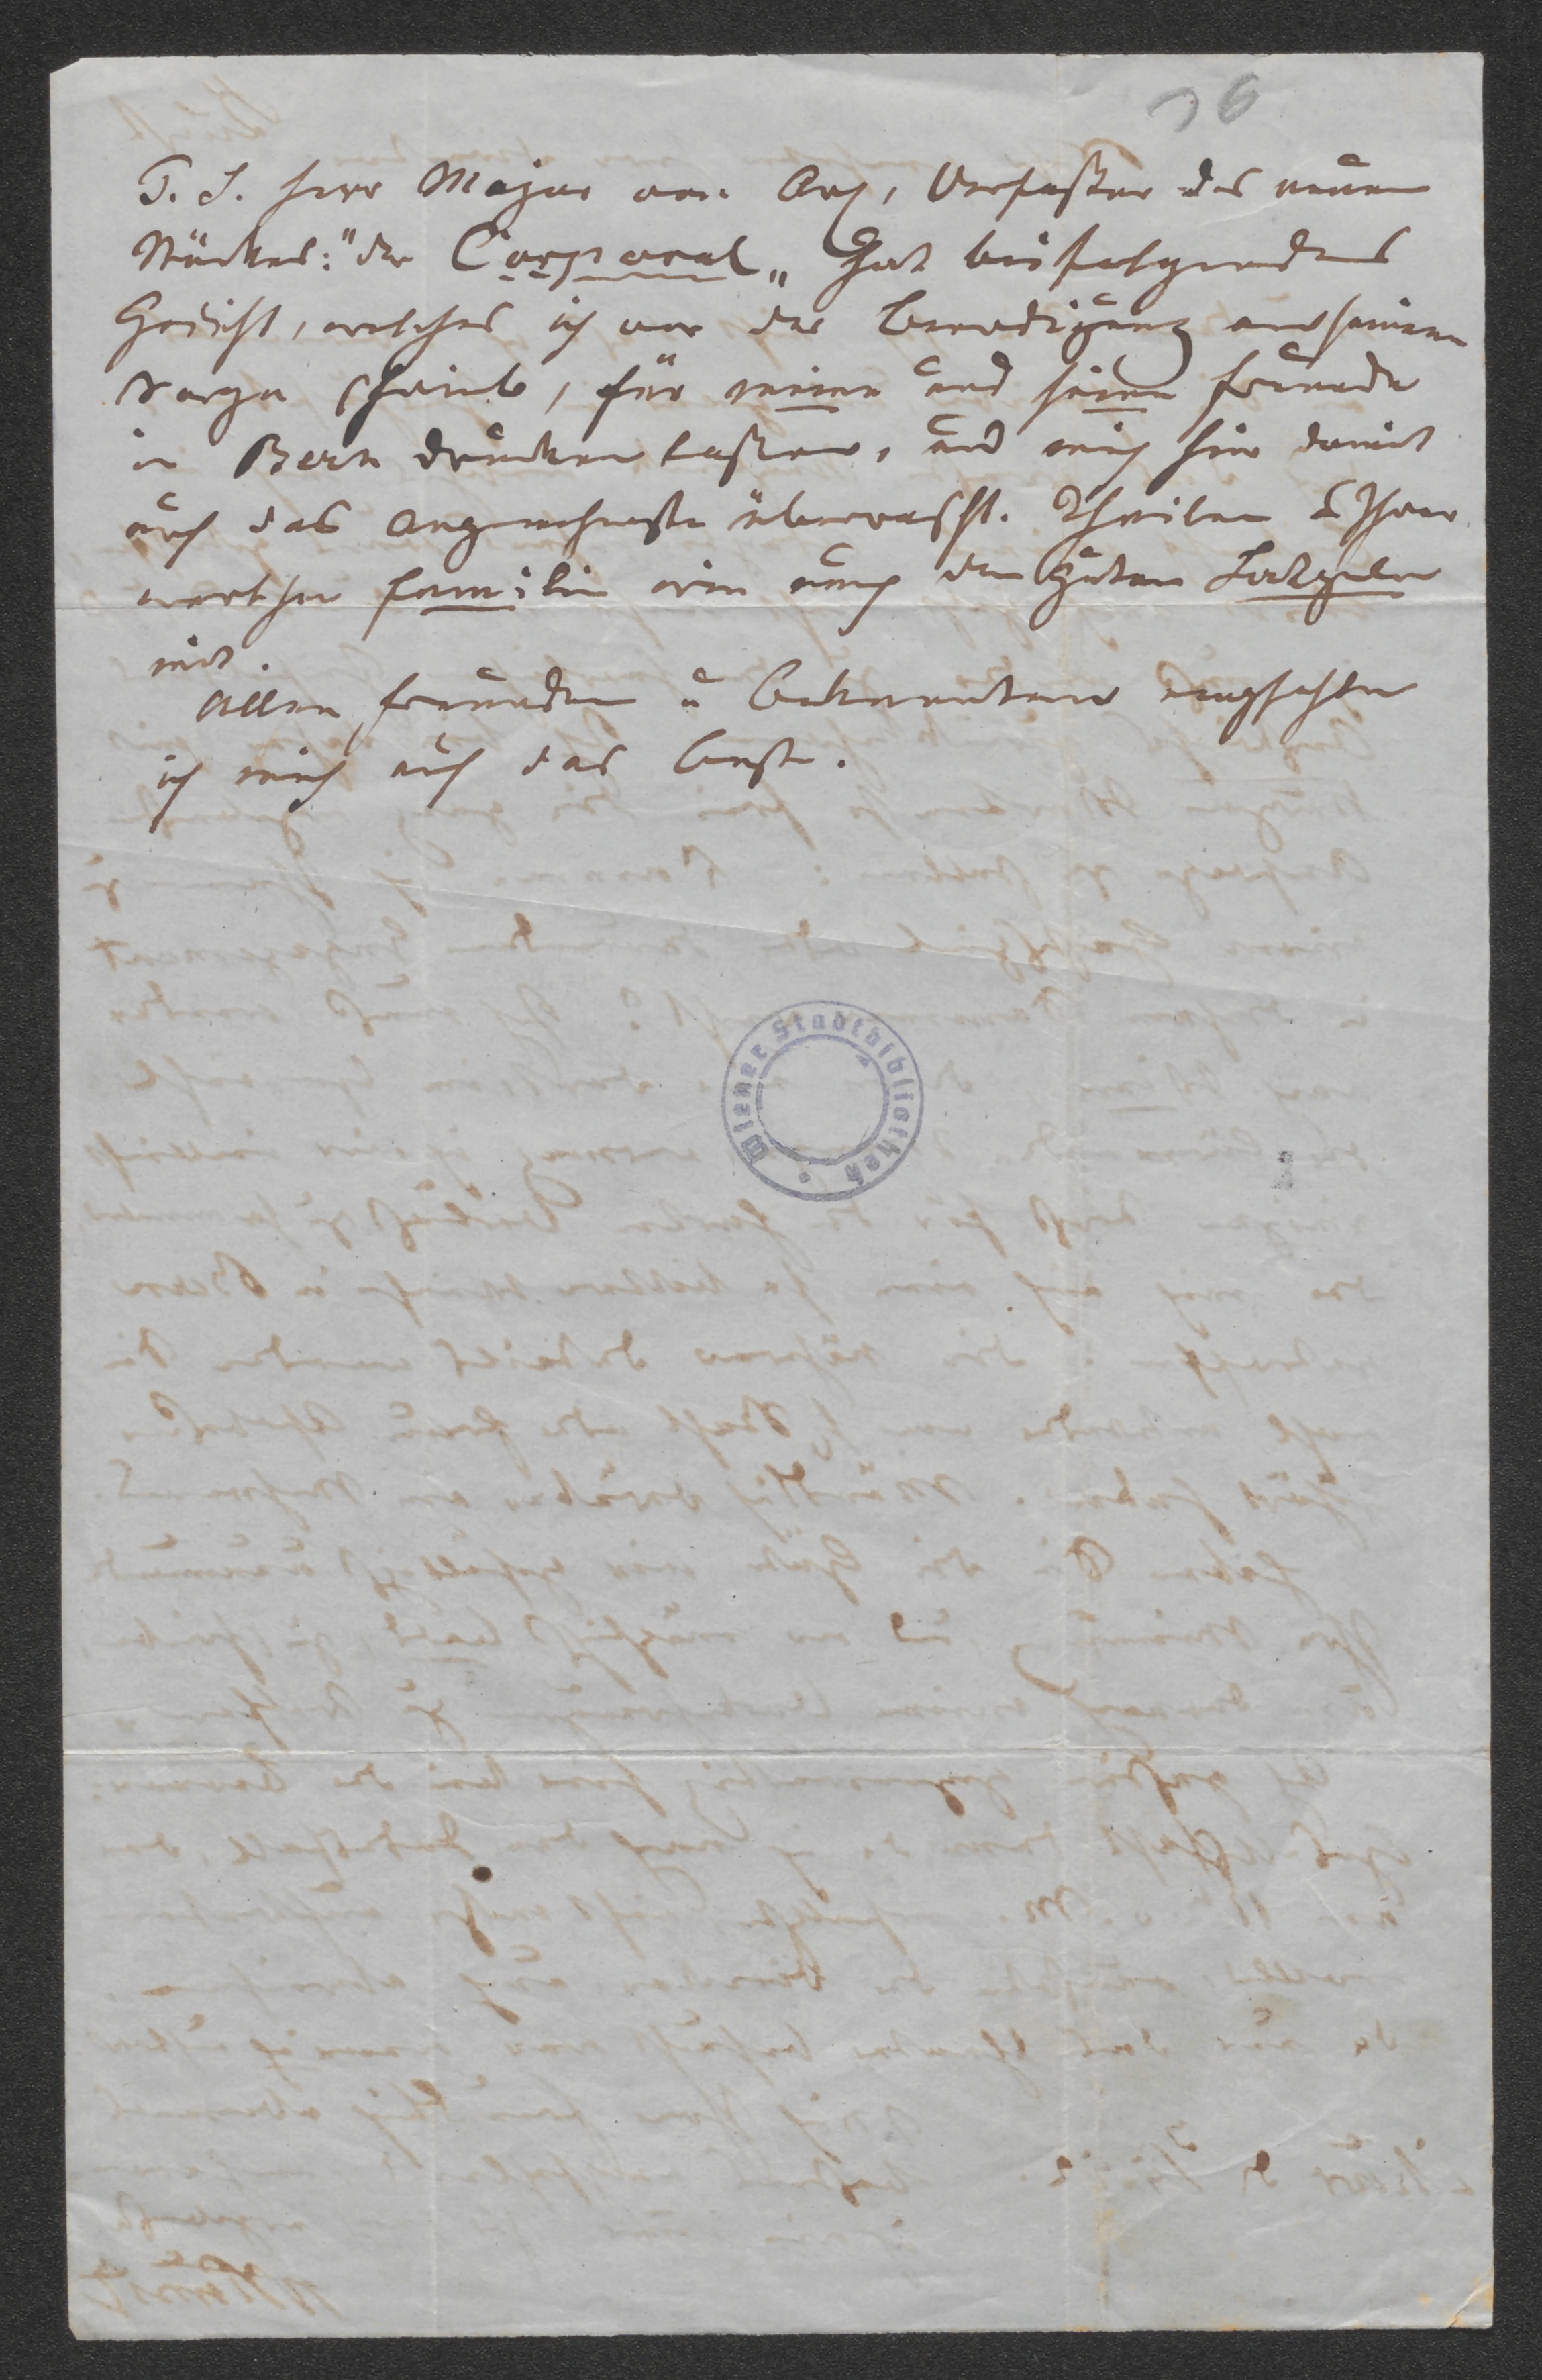 36
P. S. Herr Major von Arx, Verfasser des neuen
Stückes: "der Corporal" hat beifolgendes
Gedicht, welches ich vor der Beerdigung an seinem
Sarge schrieb, für meine und seine Freunde
in Bern drucken lassen, und mich hier damit
auf das angenehmste überrascht. Theilen Sie Ihrer
werthen Familie wie auch dem guten
mit.
Allen Freunden u Bekannten empfehle
ich mich auf das beste.
Wiener Stadtbibliothek